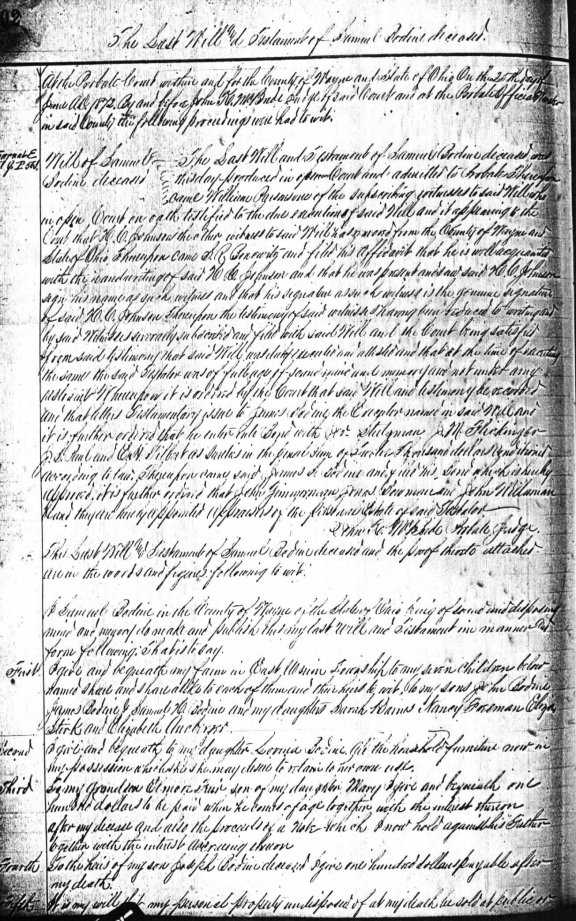 The Last Will and Testament of Samuel Bodine deceased
At the Probate Court within and for the County of Wayne and State of Ohio On the 25th day of
June AD 1872 By and before John K. McBride Judge of said Court and at the Probate Office
in said County the following proceedings were had to wit.
Will of Samuel The Last Will and Testament of Samuel Bodine deceased was
Bodine deceased this day produced in open Court and admitted to Probate Thereupon
came William one of the subscribing witnesses to said Will who
in open Court on oath testified to the due execution of said Will and it appearing to the
Court that H. C. Johnson the other witness to said Will has from the County of Wayne and
State of Ohio Thereupon came Bonewitz and filed his Affidavit that he is well acquainted
with the handwriting of said H. C. Johnson and that he was present and saw said H. C. Johnson
sign his name as such witness and that his signature as such witness is the genuine signature
of said H. C. Johnson Thereupon the testimony of said witnesses having been reduced to writing and
by said Witnesses severally subscribed and filed with said Will and the Court being satisfied
from said testimony that said Will was duly executed and attested and that at the time of executing
the same the said Testator was of full age of sound mind and memory and not under any
restraint Whereupon it is ordered by the Court that said Will and testimony be recorded
and that letters Testamentary issue to James Bodine the Executor named in said Will and
it is further ordered that he enter into Bond with
and as Sureties in the penal sum of Thousand dollars conditioned
according to law, Thereupon came said James Bodine and filed his Bond which is hereby
approved, it is further ordered that John Zimmerman Jonas Bowman and John Willaman
and they are hereby appointed appraisers of the Estate of said Testator
John K. McBride Probate Judge
The Last Will and Testament of Samuel Bodine deceased and the proof thereto attached
are in the words and figures following to wit:
I Samuel Bodine in the County of Wayne of the State of Ohio being of sound and disposing
mind and memory do make and publish this my last Will and Testament in manner and
form following; That is to say.
First. I give and bequeath my farm in East Union Township to my seven children below
named share and share alike to each of them and their heirs to wit, To my sons John Bodine
James Bodine, Samuel H. Bodine and my daughters Sarah Barnes Nancy Foreman Eliza
and Elizabeth
Second I give and bequeath to my daughter Bodine all the household furniture now in
my possession which she may desire to retain to her own use.
Third To my Grandson Elmore son of my daughter Mary I give and bequeath one
hundred dollars to be paid when he comes of age together with the interest thereon
after my decease and also the proceeds of a Note which I now hold against his Father
together with the interest accruing thereon
Fourth To the heirs of my son Joseph Bodine deceased I give one hundred dollars payable after
my death.
Fifth It is my will that my personal property undisposed of at my death be sold at public or